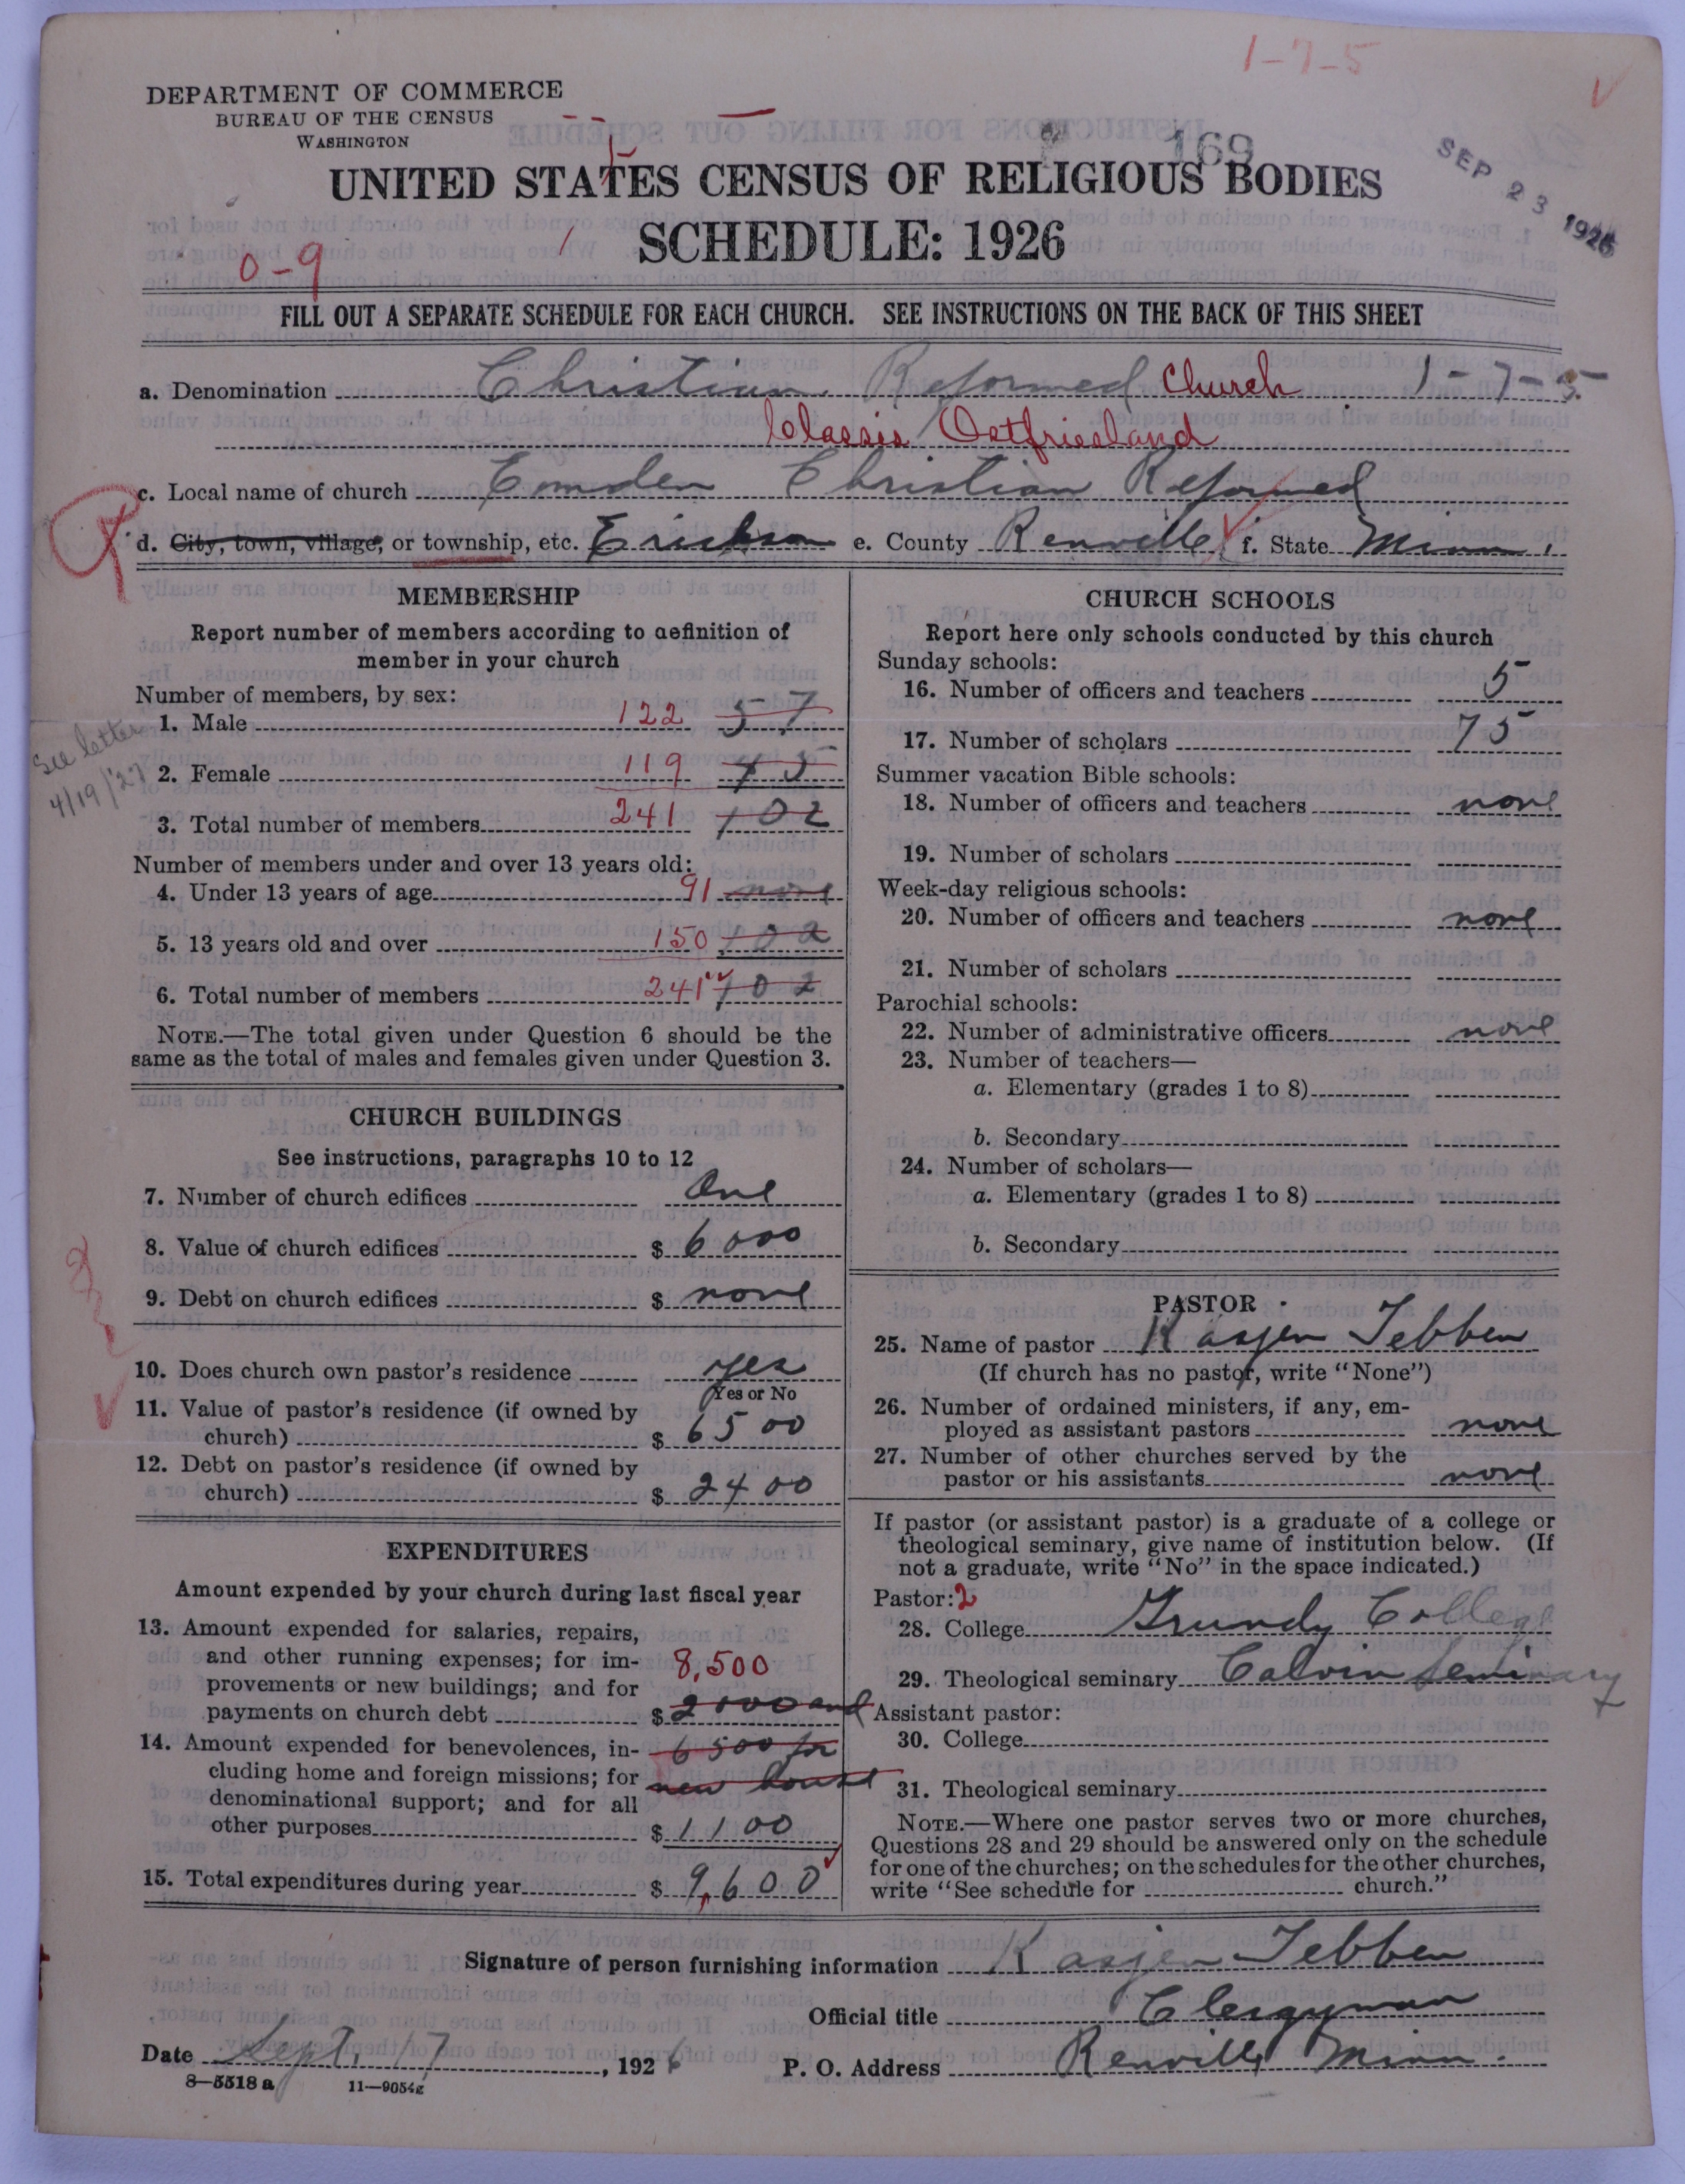 1-7-5
DEPARTMENT OF COMMERCE
BUREAU OF THE CENSUS
WASHINGTON
169
SEP 23 1926
UNITED STATES CENSUS OF RELIGIOUS BODIES
SCHEDULE: 1926
0-9
FILL OUT A SEPARATE SCHEDULE FOR EACH CHURCH. SEE INSTRUCTIONS ON THE BACK OF THIS SHEET
a. Denomination Christian Reformed Church 1-7-5
Classis Ostfriesland
c. Local name of church Emden Christian Reformed
d. City, town, village, or township, etc. Erickson e. County Renville f. State Minn.
MEMBERSHIP
Report number of members according to definition of
member in your church
Number of members, by sex:
1. Male 122 57
See letter
4/19/'27
2. Female 119 45
3. Total number of members 241 102
Number of members under and over 13 years old:
4. Under 13 years of age 91 none
5. 13 years old and over 150 102
6. Total number of members 241 102
NOTE.—The total given under Question 6 should be the
same as the total of males and females given under Question 3.
CHURCH BUILDINGS
See instructions, paragraphs 10 to 12
7. Number of church edifices One
8. Value of church edifices $ 6000
9. Debt on church edifices $ none
10. Does church own pastor's residence yes
Yes or No
11. Value of pastor's residence (if owned by
church) $ 6500
12. Debt on pastor's residence (if owned by
church) $ 2400
EXPENDITURES
Amount expended by your church during last fiscal year
13. Amount expended for salaries, repairs,
and other running expenses; for im-
provements or new buildings; and for
payments on church debt 8,500 $ 2000 and
6500 for
new house
14. Amount expended for benevolences, in-
cluding home and foreign missions; for
denominational support; and for all
other purposes $ 1100
15. Total expenditures during year $ 9,600
CHURCH SCHOOLS
Report here only schools conducted by this church
Sunday schools:
16. Number of officers and teachers 5
17. Number of scholars 75
Summer vacation Bible schools:
18. Number of officers and teachers none
19. Number of scholars
Week-day religious schools:
20. Number of officers and teachers none
21. Number of scholars
Parochial schools:
22. Number of administrative officers none
23. Number of teachers—
a. Elementary (grades 1 to 8)
b. Secondary
24. Number of scholars—
a. Elementary (grades 1 to 8)
b. Secondary
PASTOR
25. Name of pastor Kasjen Tebben
(If church has no pastor, write "None")
26. Number of ordained ministers, if any, em-
ployed as assistant pastors none
27. Number of other churches served by the
pastor or his assistants none
If pastor (or assistant pastor) is a graduate of a college or
theological seminary, give name of institution below. (If
not a graduate, write "No" in the space indicated.)
Pastor: 2
28. College Grundy College
29. Theological seminary Calvin Seminary
Assistant pastor:
30. College
31. Theological seminary
NOTE.—Where one pastor serves two or more churches,
Questions 28 and 29 should be answered only on the schedule
for one of the churches; on the schedules for the other churches,
write "See schedule for church."
Signature of person furnishing information Kasjen Tebben
Official title Clergyman
Date Sept. 17, 1926 P. O. Address Renville Minn.
8—5518 a 11—9054